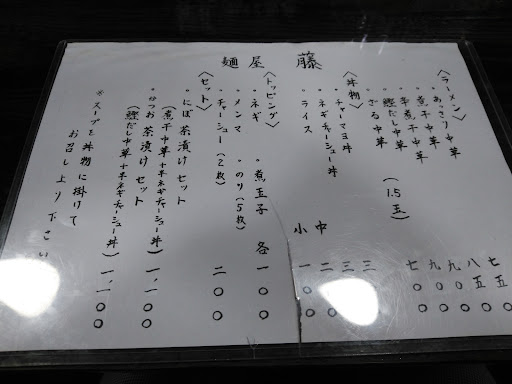 麺屋 藤
〈ラーメン〉
・あっさり中華 七五〇
・煮干中華 八五〇
・辛煮干中華 九〇〇
・鰹だし中華 九〇〇
・ざる中華 (1.5玉) 七〇〇
〈丼物〉
・チャーマヨ丼 三〇〇
・ネギチャーシュー丼 三〇〇
・ライス 中 二〇〇
小 一〇〇
〈トッピング〉
・ネギ ・煮玉子 各一〇〇
・メンマ ・のり(5枚)
・チャーシュー(2枚) 二〇〇
〈セット〉
・にぼ茶漬けセット
(煮干中華+半ネギチャーシュー丼) 一、一〇〇
・かつお茶漬けセット
(鰹だし中華+半ネギチャーシュー丼) 一、一〇〇
※スープを丼物に掛けて
お召し上り下さい